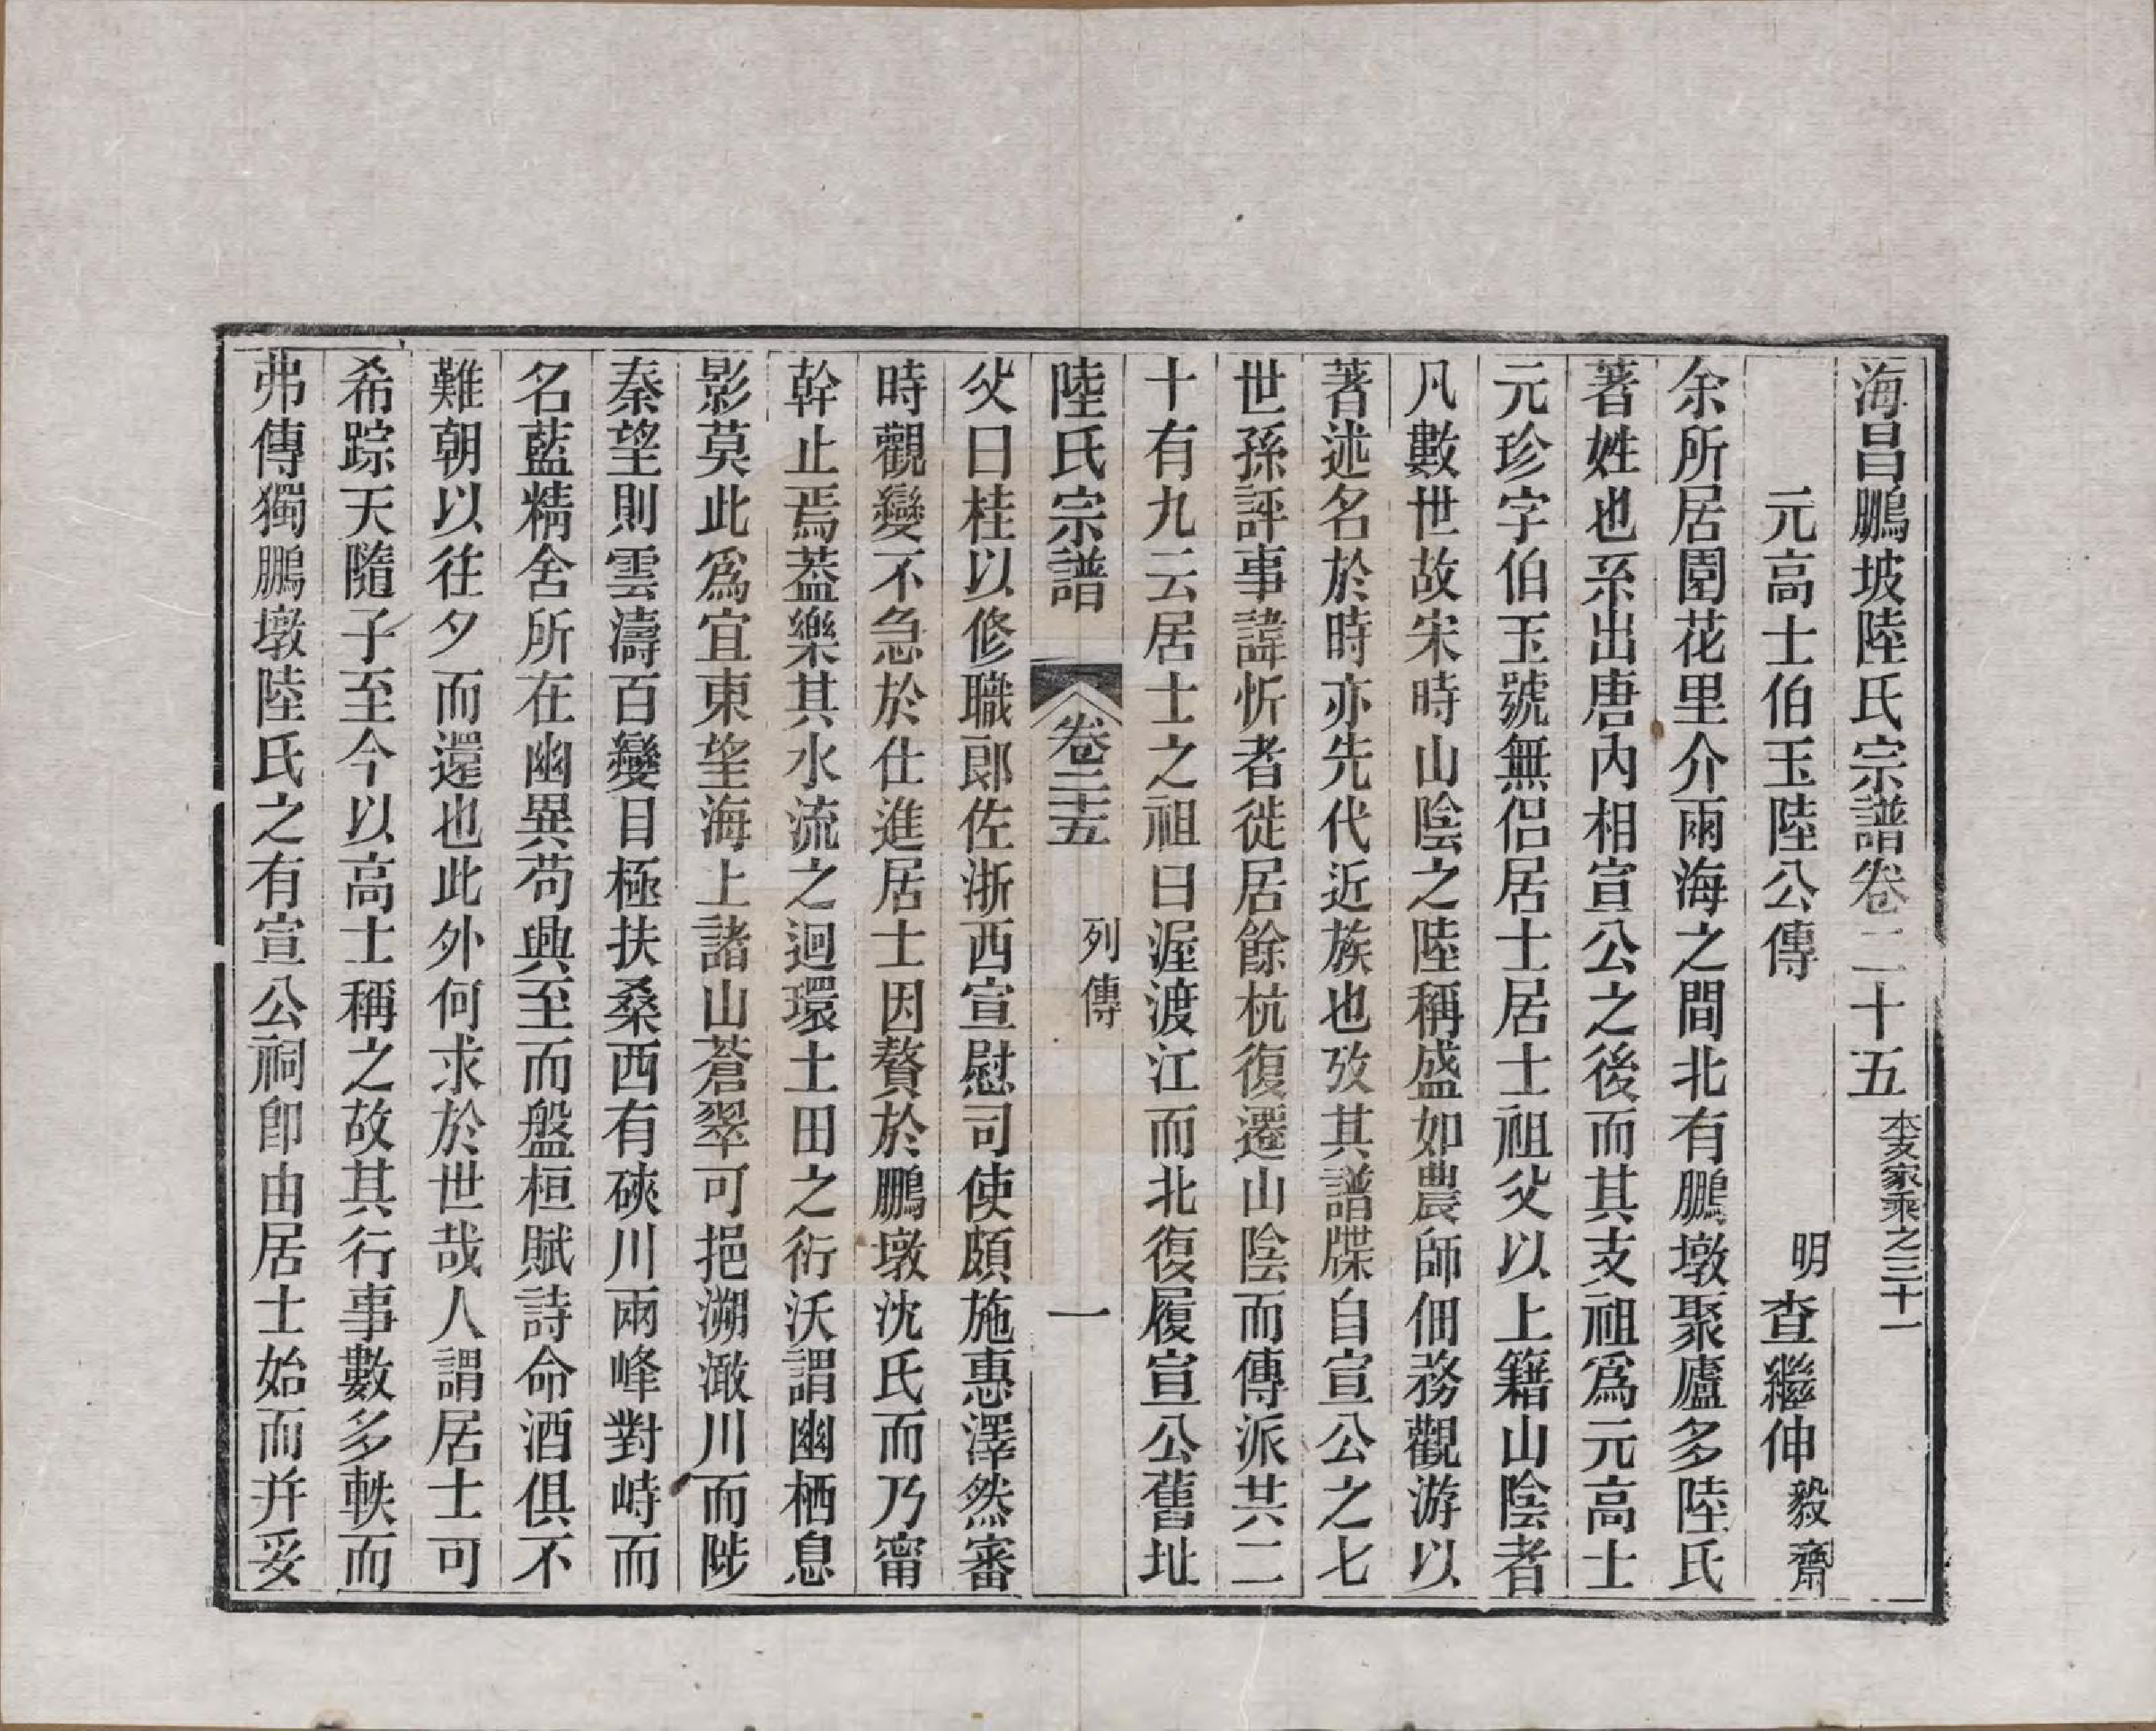 海昌鵬坡陸氏宗譜卷二十五 本支家乘之三十一
元高士伯玉陸公傳 明 查繼伸 毅齋
余所居園花里介兩海之間北有鵬墩聚廬多陸氏
著姓也系出唐內相宣公之後而其支祖爲元高士
元珍字伯玉號無侶居士居士祖父以上籍山陰者
凡數世故宋時山陰之陸稱盛如農師佃務觀游以
著述名於時亦先代近族也攷其譜牒自宣公之七
世孫評事諱忻者徙居餘杭復遷山陰而傳派共二
十有九云居士之祖曰渥渡江而北復履宣公舊址
陸氏宗譜 卷二十五 列傳 一
父曰桂以修職郎佐浙西宣慰司使頗施惠澤然審
時觀變不急於仕進居士因贅於鵬墩沈氏而乃甯
幹止焉葢樂其水流之迴環土田之衍沃謂幽栖息
影莫此爲宜東望海上諸山蒼翠可挹溯澉川而陟
秦望則雲濤百變目極扶桑西有硤川兩峰對峙而
名藍精舍所在幽異苟興至而盤桓賦詩命酒俱不
難朝以往夕而還也此外何求於世哉人謂居士可
希踪天隨子至今以高士稱之故其行事數多軼而
弗傳獨鵬墩陸氏之有宣公祠卽由居士始而并妥